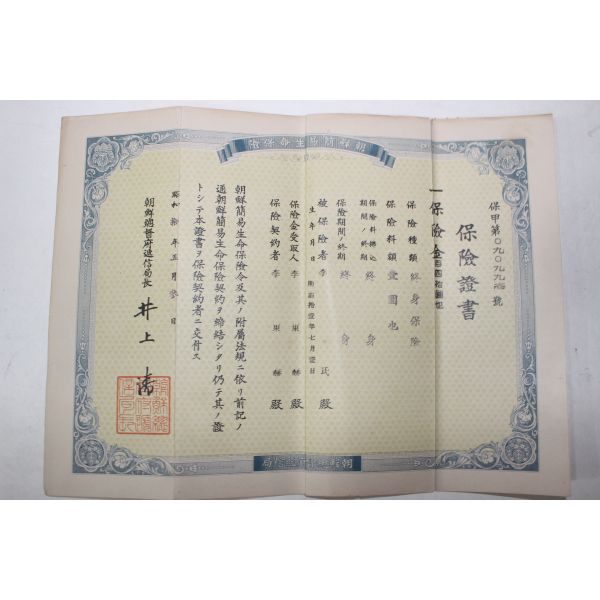 朝鮮簡易生命保險
保險證書
一保險金
保險種類 終身保險
保險料額 壹圓也
保險料拂込期間ノ終期 終身
保險期間ノ終期 終身
被保險者 李 氏 殿
生年月日
保險金受取人 李 東 殿
保險契約者 李 東 殿
朝鮮簡易生命保險令及其ノ附屬法規ニ依リ前記ノ
通朝鮮簡易生命保險契約ヲ締結シタリ仍テ其ノ證
トシテ本證書ヲ保險契約者ニ交付ス
昭和拾年五月 日
朝鮮總督府遞信局長 井上清